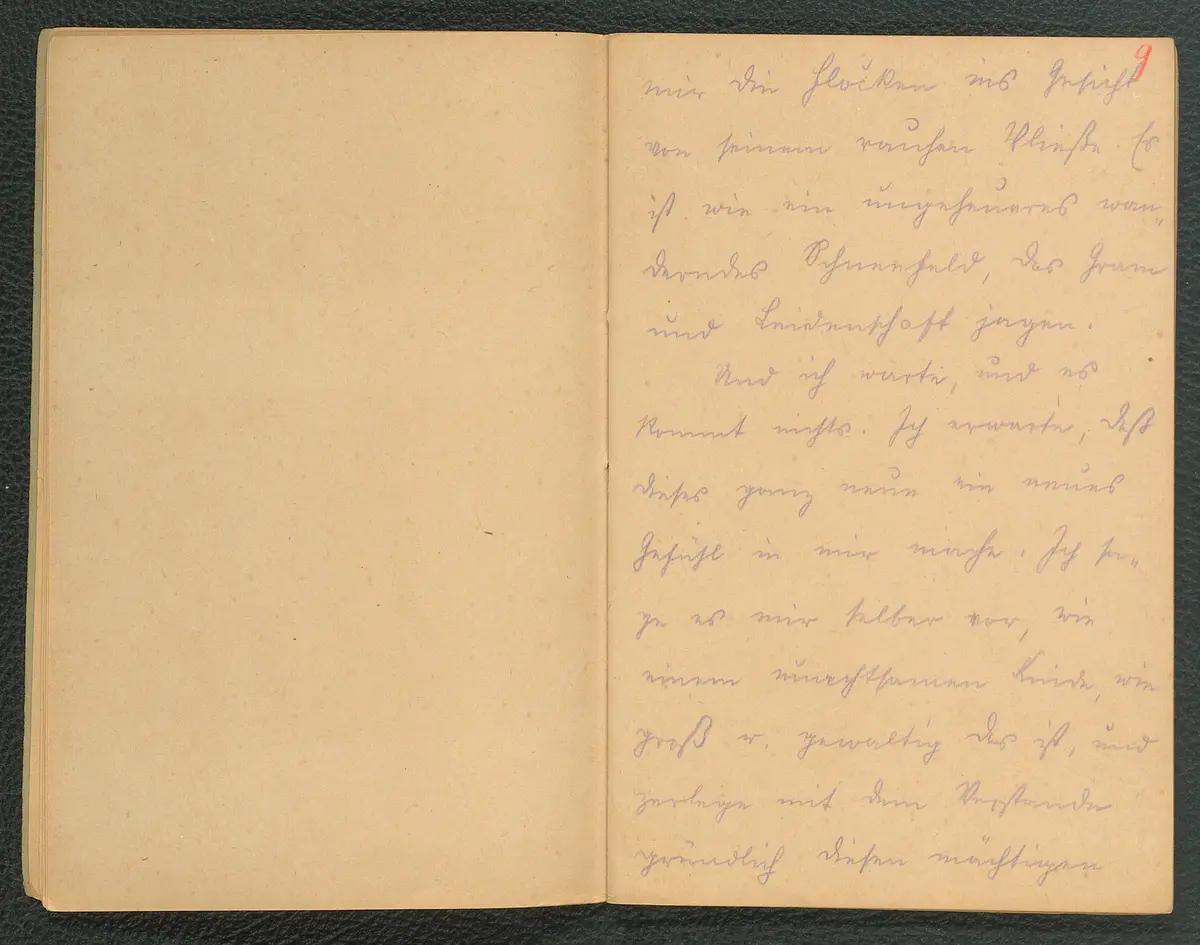 9
mir die Flocken ins Gesicht
von seinem rauhen Vließe. Es
ist wie ein ungeheueres wan-
derndes Schneefeld, das Gram
und Leidenschaft jagen.
Und ich warte, und es
kommt nichts. Ich erwarte, daß
dieses ganz neue ein neues
Gefühl in mir mache. Ich sa-
ge es mir selber vor, wie
einem unachtsamen Kinde, wie
groß u. gewaltig das ist, und
zerlege mit dem Verstande
gründlich diesen mächtigen